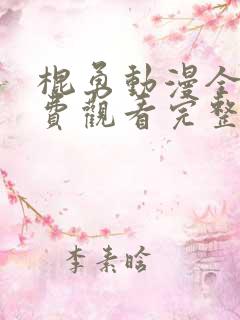 棍勇動漫全
費觀看完整
李素晗